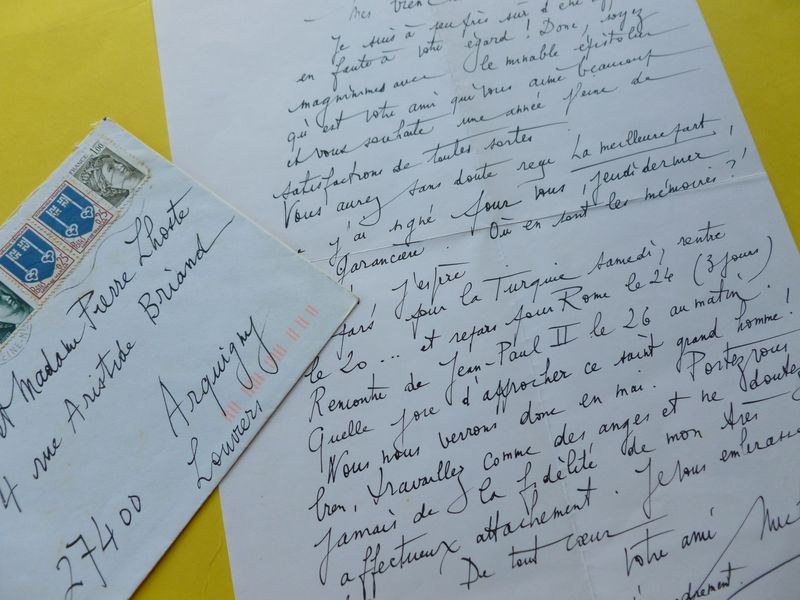 Mes bien
Je suis à peu près sûr d'être
en faute à votre égard ! Donc, soyez
magnanimes avec le minable épistolier
qu'est votre ami qui vous aime beaucoup
et vous souhaite une année pleine de
satisfactions de toutes sortes.
Vous aurez sans doute reçu La meilleure part
j'ai signé pour vous, jeudi dernier,
Garancière. Où en sont les mémoires ?!
J'espère
pars pour la Turquie samedi, rentre
le 20 ... et repars pour Rome le 24 (3 jours)
Rencontre de Jean-Paul II le 26 au matin.
Quelle joie d'approcher ce saint grand homme !
Nous nous verrons donc en mai. Portez vous
bien, travaillez comme des anges et ne doutez
jamais de la fidélité de mon très
affectueux attachement. Je vous embrasse
De tout cœur
Votre ami
FRANCE
1,00
0,25
0,25
et Madame Pierre Lhoste
4 rue Aristide Briand
Arquigny
Louviers
27400